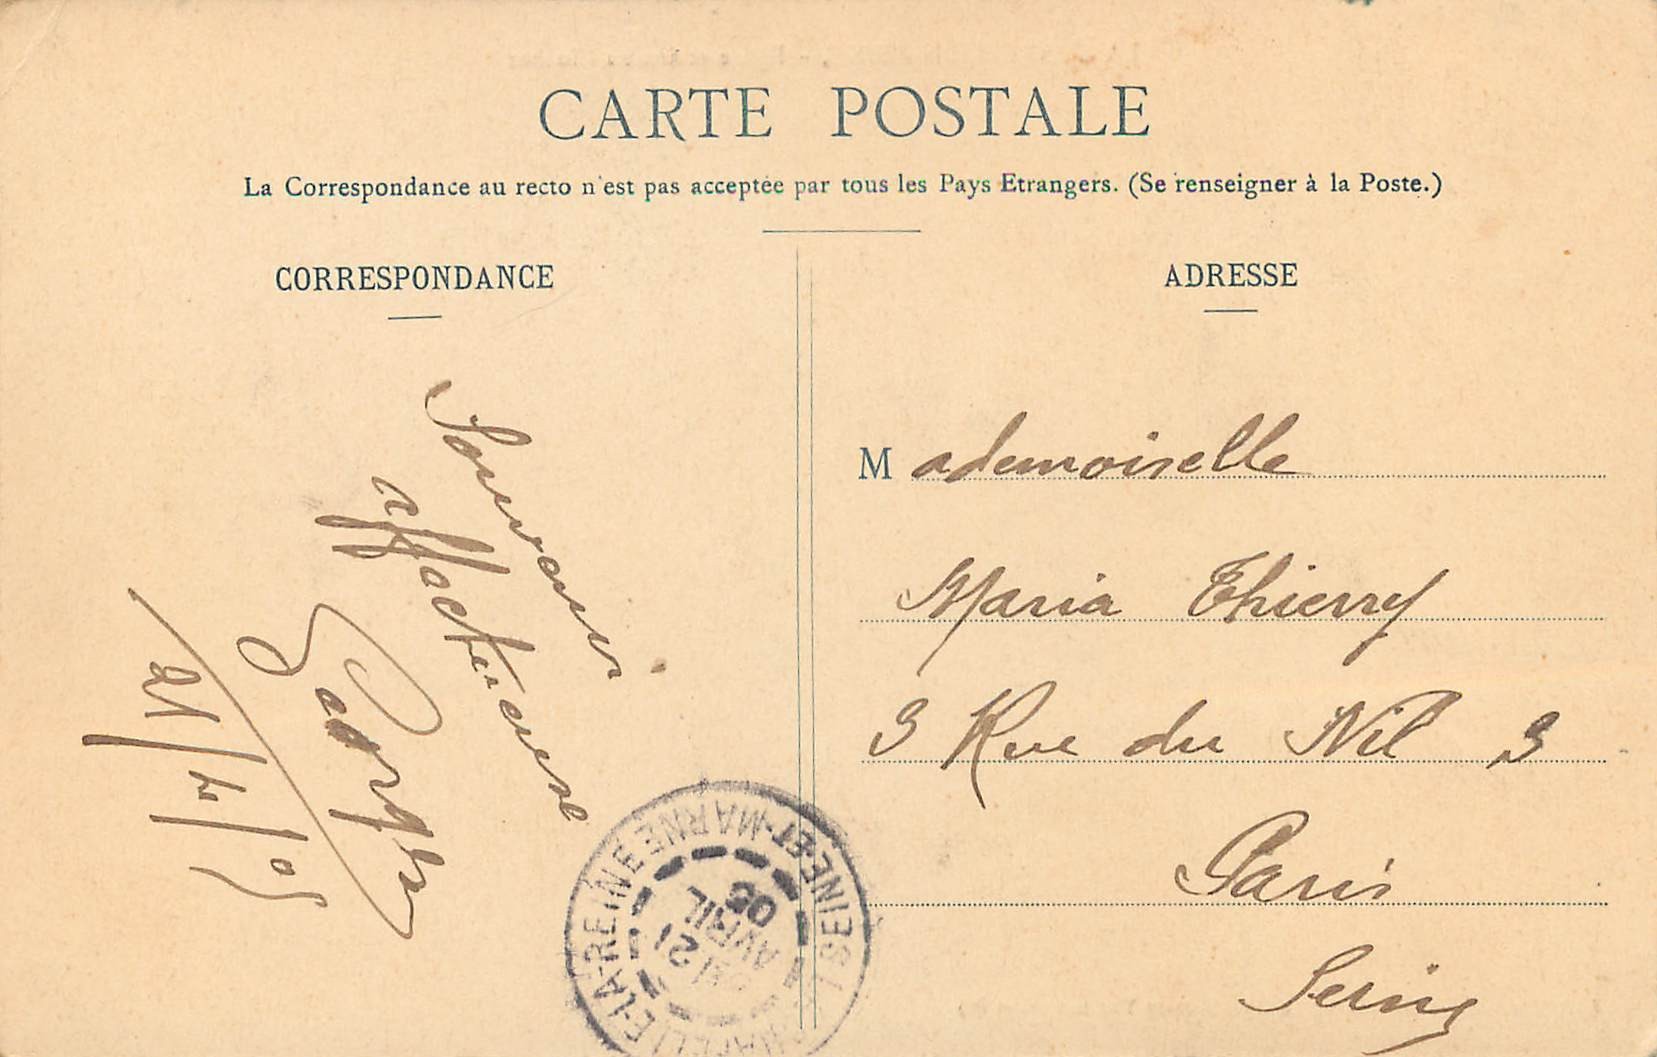 CARTE POSTALE
La Correspondance au recto n'est pas acceptée par tous les Pays Etrangers. (Se renseigner à la Poste.)
CORRESPONDANCE
Souvenir
affectueux
21/4/05
ADRESSE
Mademoiselle
Maria Thierry
3 Rue du Nil 3
Paris
Seine
LA-REINE SEINE-ET-MARNE
21
AVRIL
05